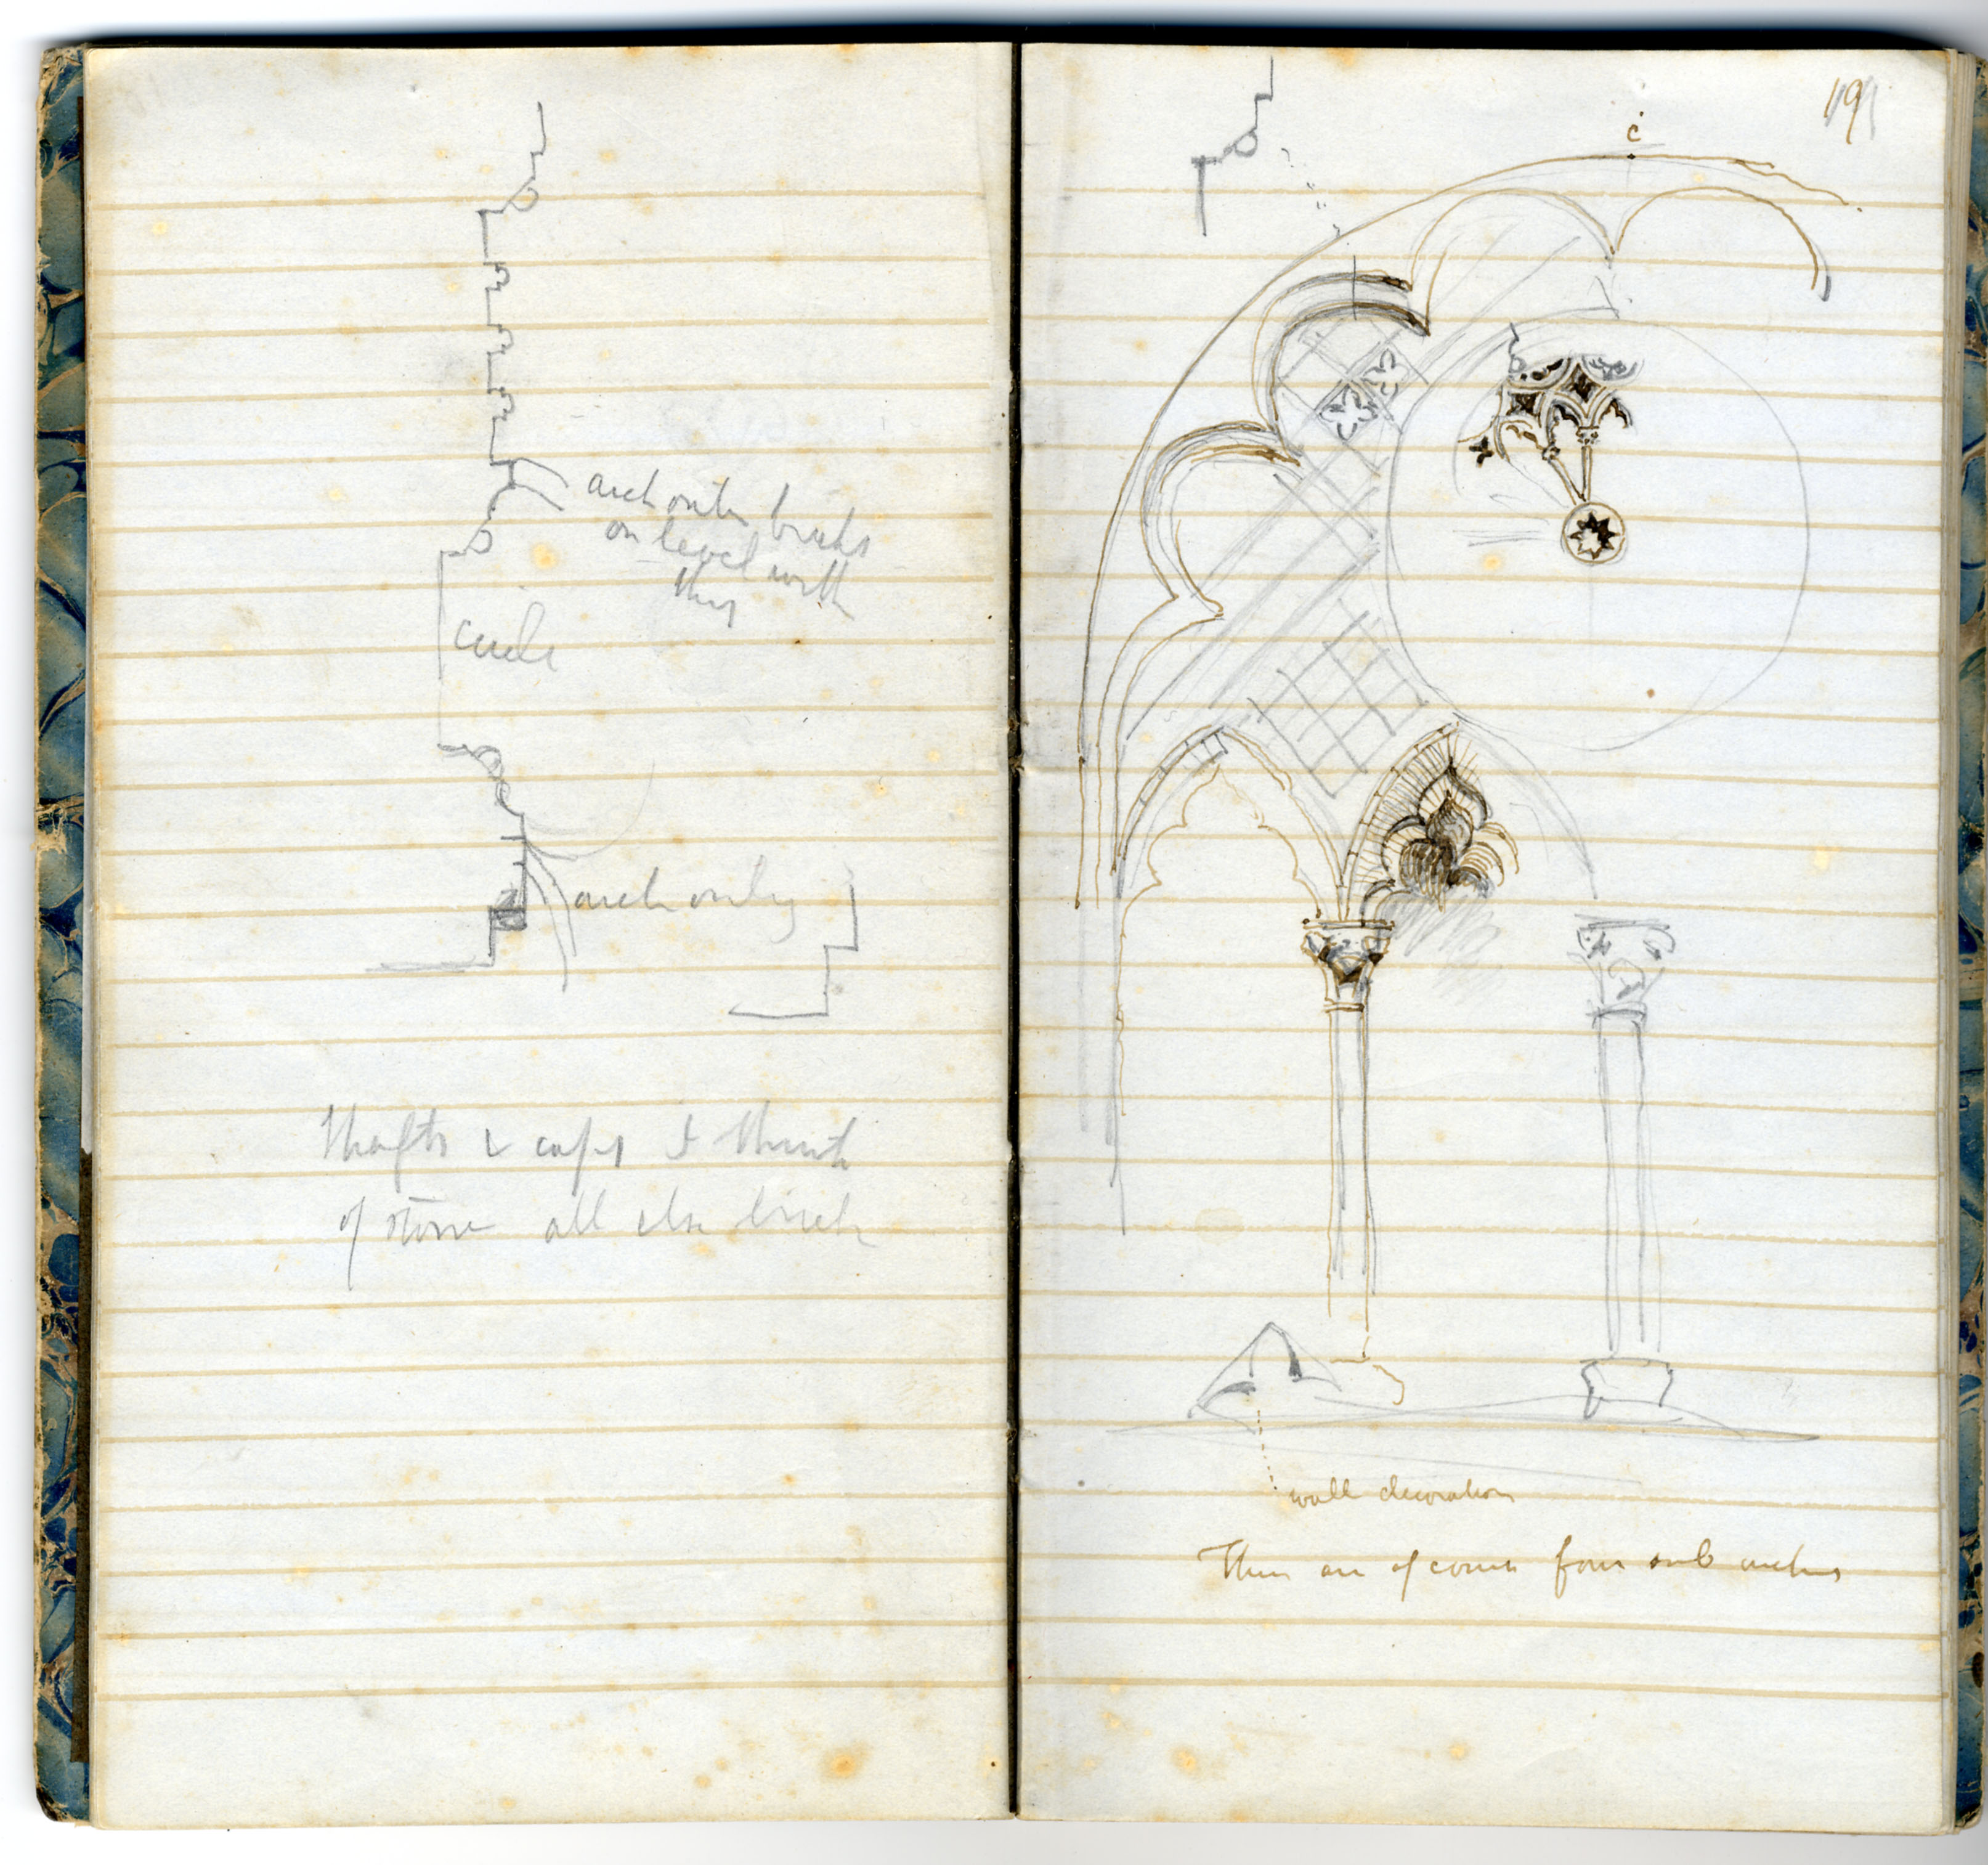 arch outer bricks
on level with
this
circle
arch only
Shafts & caps I think
of stone all else brick
19
c
wall decoration
There are of course four sub arches